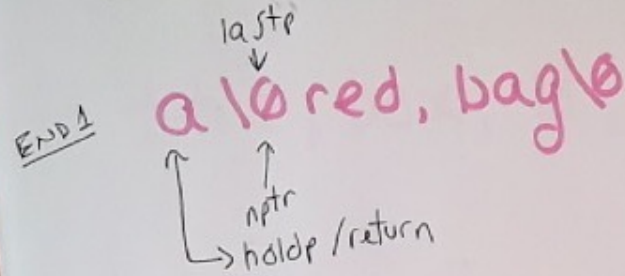 lastp
END1 a \0 red, bag\0
nptr
holdp / return